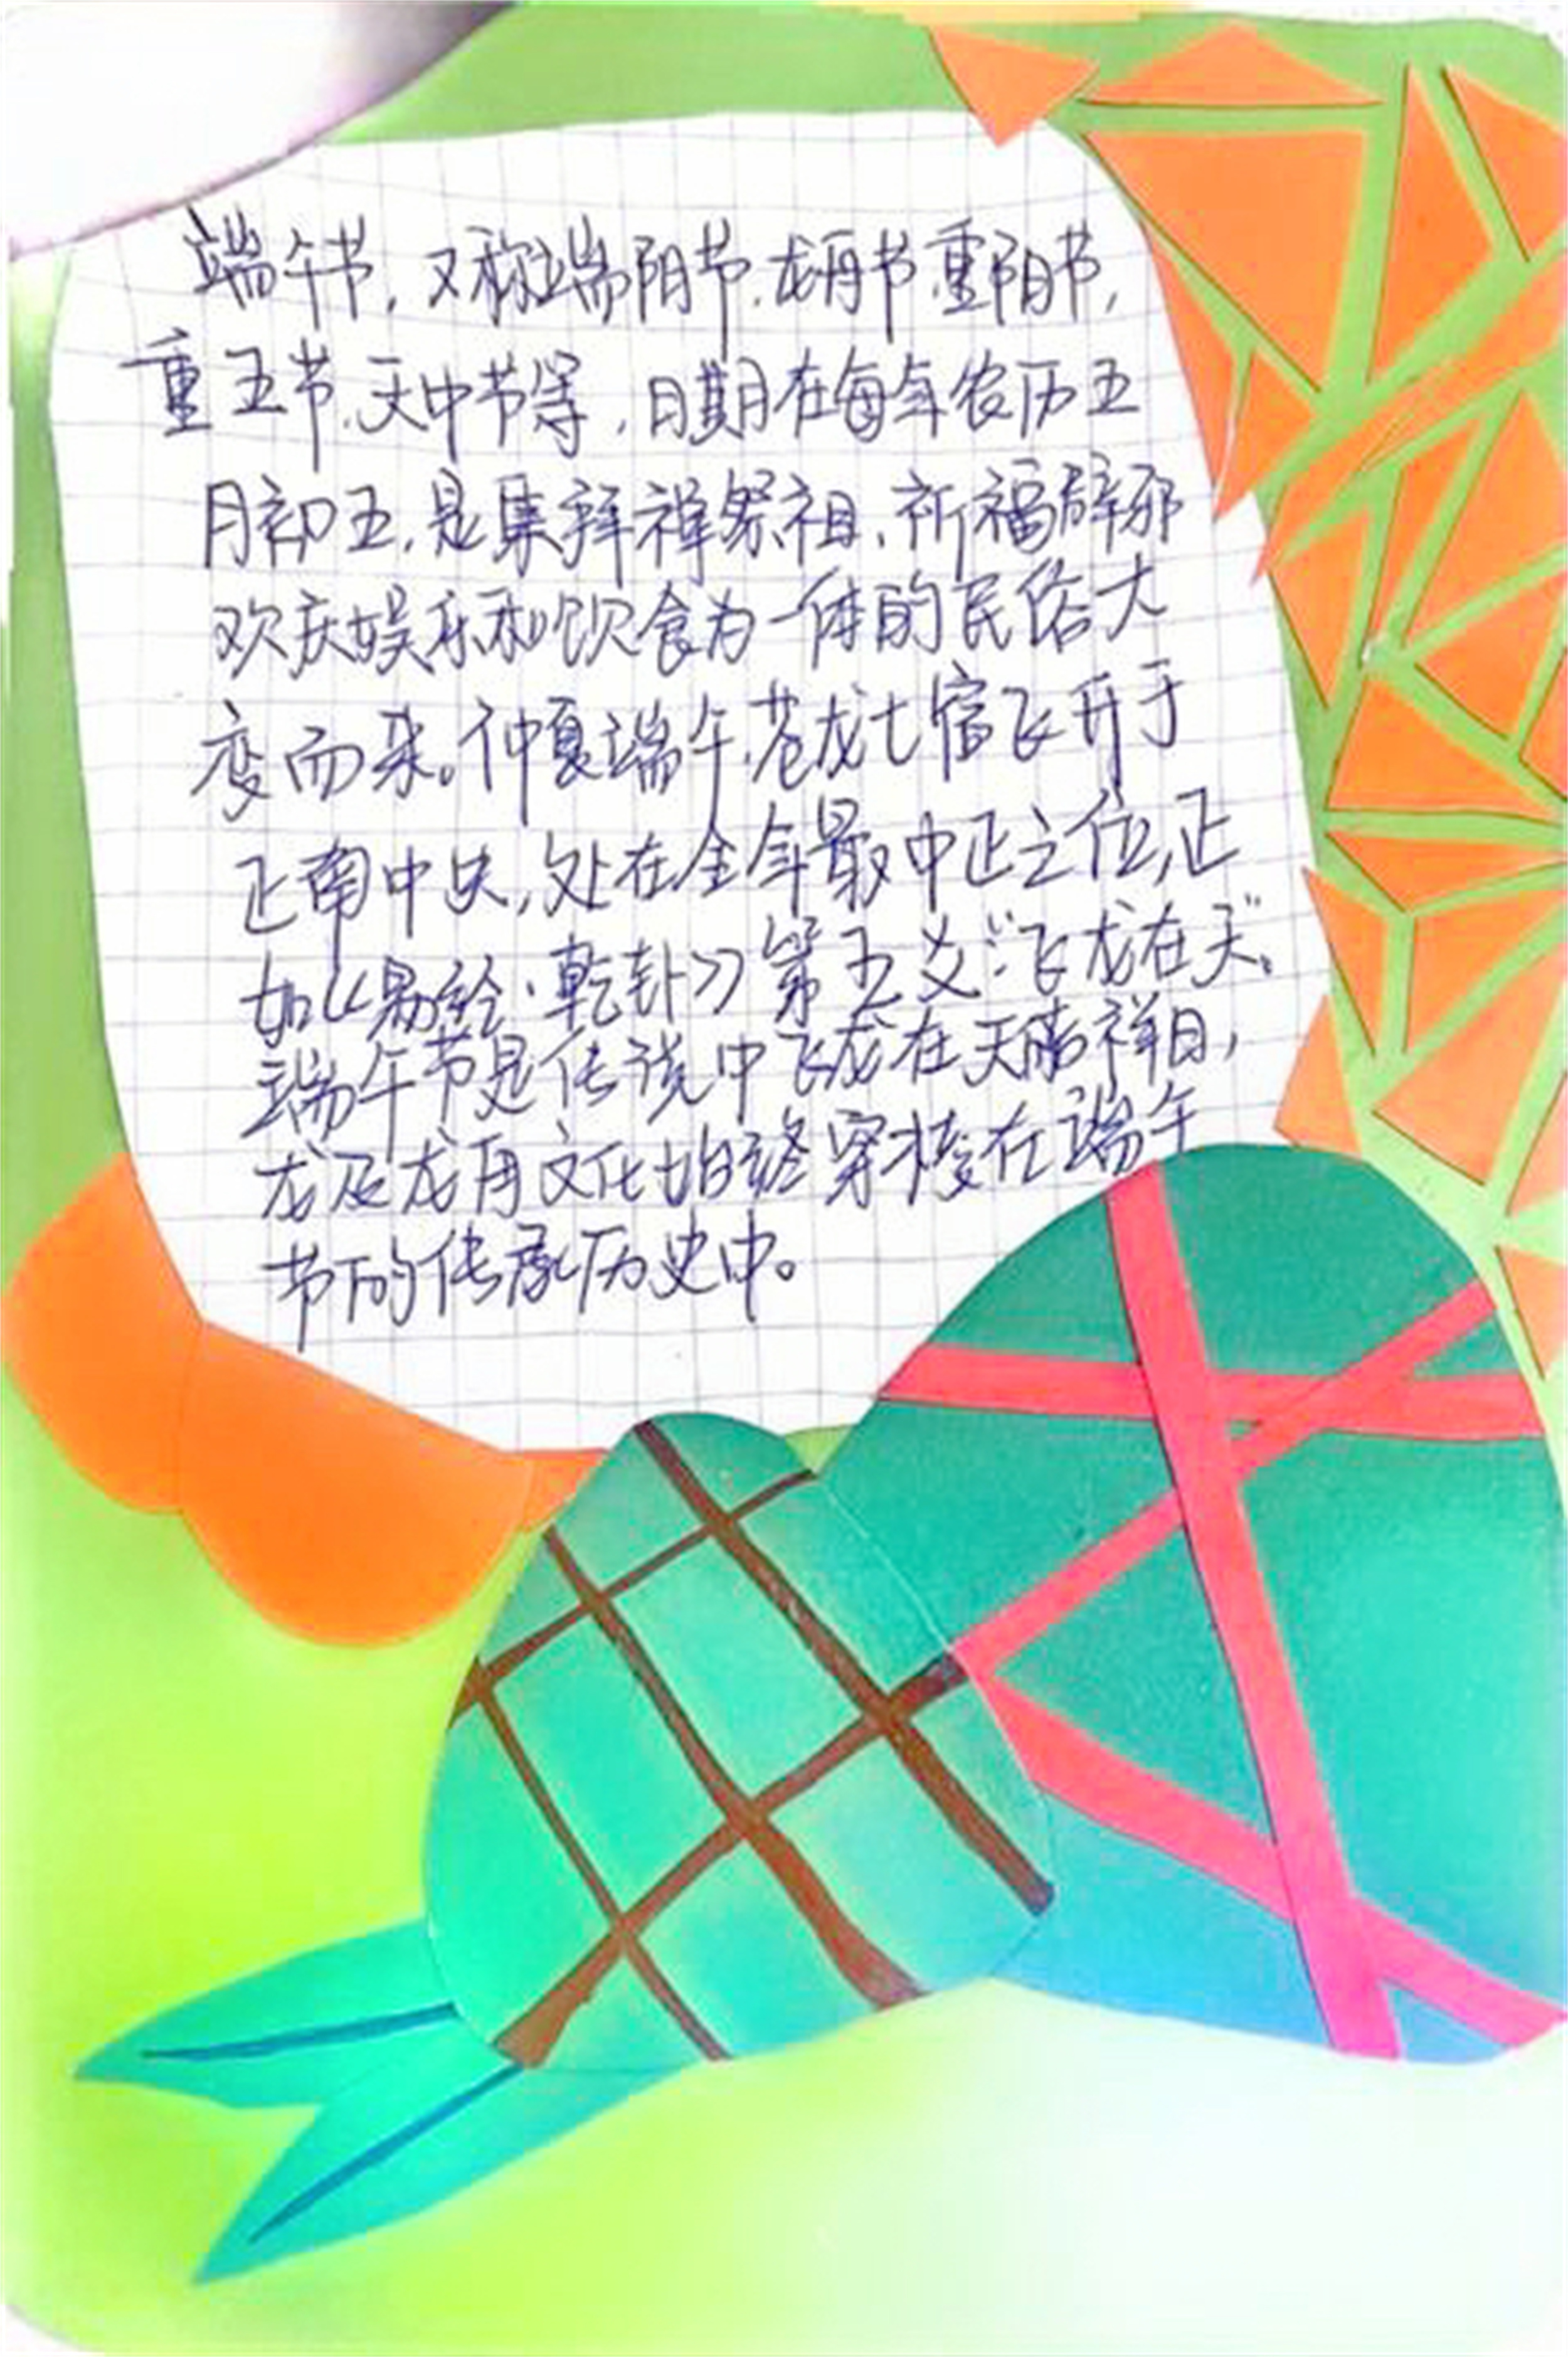 端午节，又称端阳节、龙舟节、重阳节，
重五节、天中节等，日期在每年农历五
月初五，是集拜祥祭祖、祈福辟邪
欢庆娱乐和饮食为一体的民俗大
变而来。仲夏端午，苍龙七宿飞升于
正南中央，处在全年最中正之位，正
如《易经·乾卦》第五爻：“飞龙在天”。
端午节是传说中飞龙在天吉祥日，
龙及龙舟文化始终穿梭在端午
节的传承历史中。